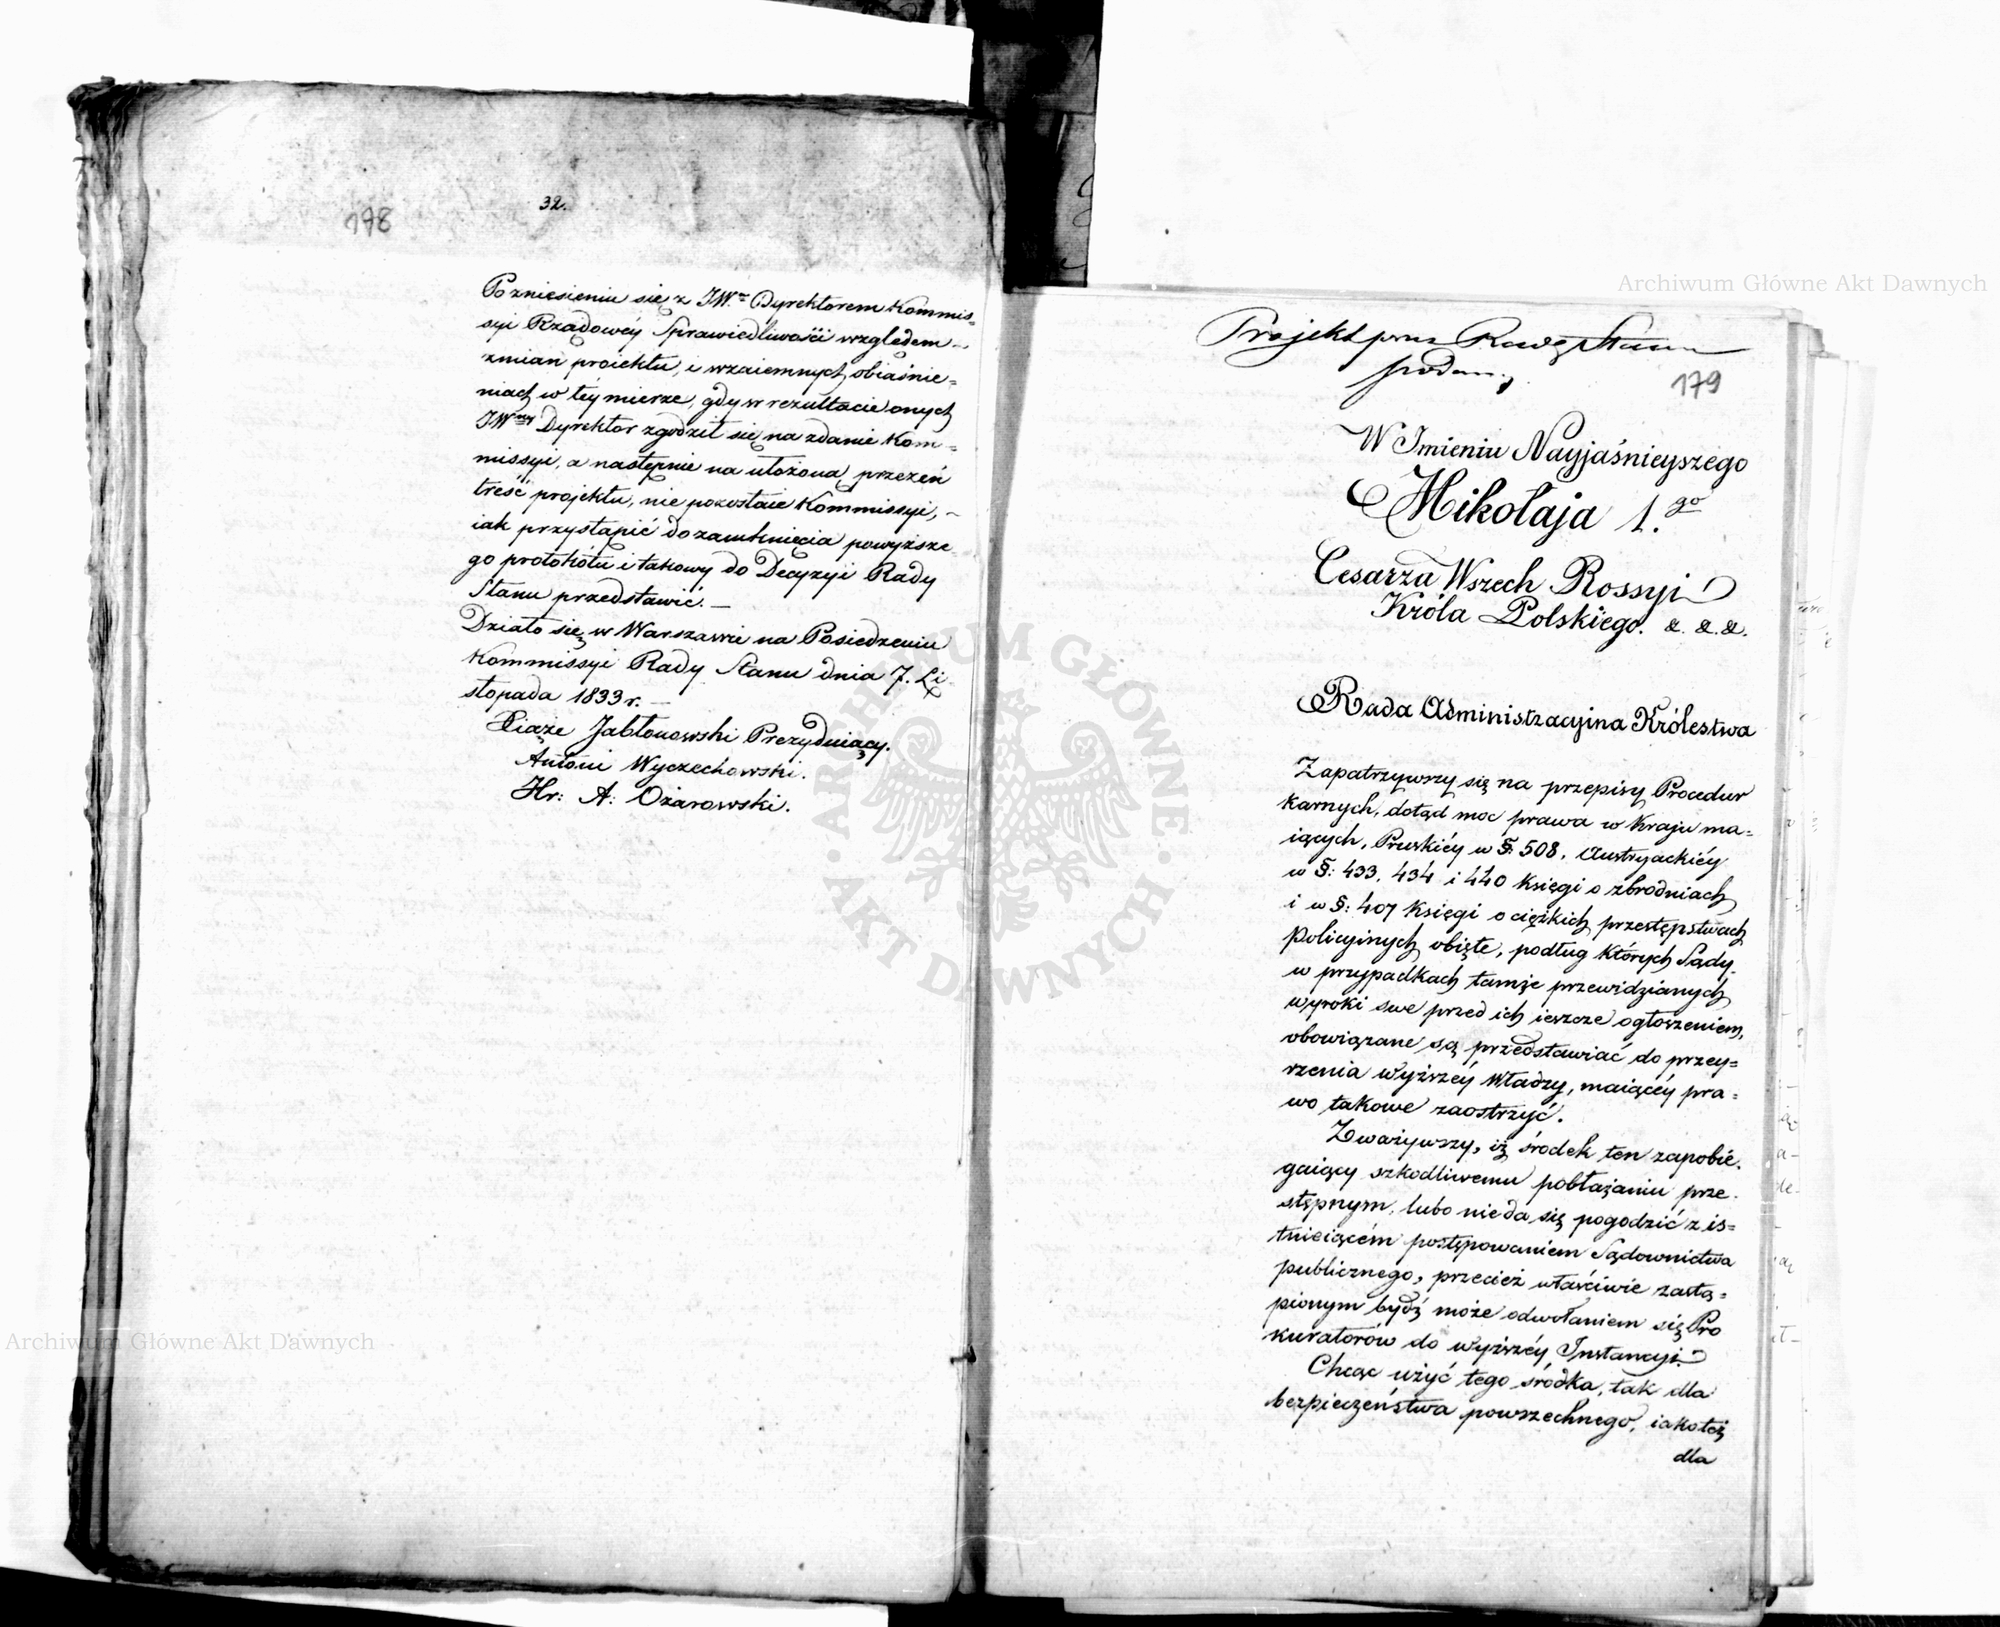 178
32.
Po zniesieniu się z JW.m Dyrektorem Kommis-
syi Rządowéy Sprawiedliwości względem
zmian proiektu, i wzaiemnych obiaśnie=
niach w téy mierze, gdy w rezultacie onych
JWny Dyrektor zgodził się na zdanie Kom=
missyi, a następnie na ułożoną przezeń
treść projektu, nie pozostaie Kommissyi, -
iak przystąpić do zamknięcia powyższe-
go protokółu i takowy do Decyzyi Rady
Stanu przedstawić. —
Działo się w Warszawie na Posiedzeniu
Kommissyi Rady Stanu dnia 7. Li-
stopada 1833 r. —
Xiąże Jabłonowski Prezyduiący.
Antoni Wyczechowski.
Hr: A: Ożarowski.
Projekt przez Radę Stanu
podany.
179
W Imieniu Nayjaśnieyszego
Mikołaja 1.go
Cesarza Wszech Rossyi
Króla Polskiego. &. &. &.
Rada Administracyjna Królestwa
Zapatrzywszy się na przepisy Procedur
karnych, dotąd moc prawa w Kraju ma=
iących, Pruskiéy w §. 508, Austryackiéy
w §: 433, 434 i 440 Księgi o zbrodniach
i w §: 407 Księgi o ciężkich przestępstwach
Policyinych obięte, podług których Sądy
w przypadkach tamże przewidzianych,
wyroki swe przed ich ieszcze ogłoszeniem,
obowiązane są przedstawiać do przey=
rzenia wyższéy Władzy, maiącéy pra=
wo takowe zaostrzyć.
Zważywszy, iż środek ten zapobie-
gaiący szkodliwemu pobłażaniu prze-
stępnym, lubo nie da się pogodzić z is=
tnieiącém postępowaniem Sądownictwa
publicznego, przecież właściwie zastą=
pionym bydź może odwołaniem się Pro
kuratorów do wyższéy Instancyi.
Chcąc użyć tego środka, tak dla
bezpieczeństwa powszechnego, iakoteż
dla
Archiwum Główne Akt Dawnych
Archiwum Główne Akt Dawnych
ARCHIWUM GŁÓWNE
· AKT DAWNYCH ·